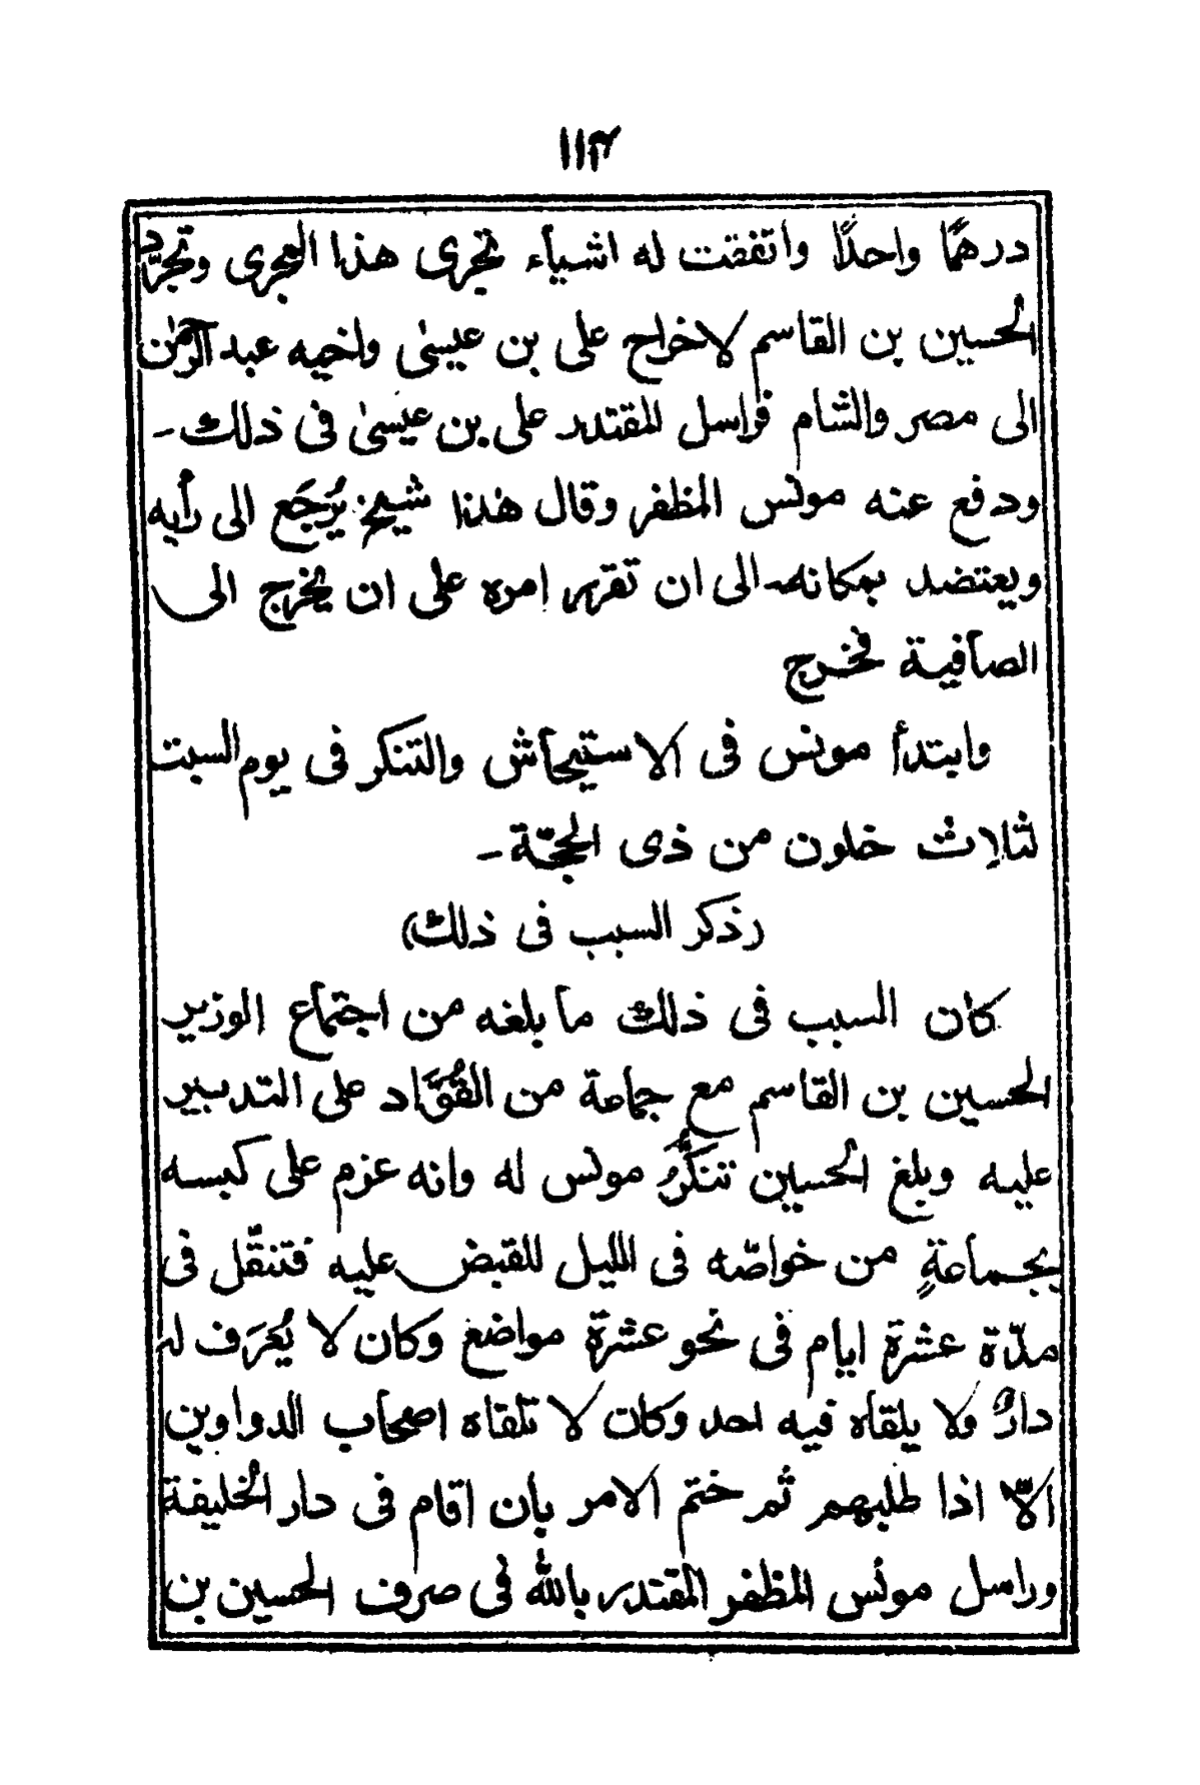 ١١٣
درهمًا واحدًا واتفقت له اشياء تجرى هذا المجرى وتجرَّد
الحسين بن القاسم لاخراج على بن عيسىٰ واخيه عبد الرحمٰن
الى مصر والشام فراسل المقتدر على بن عيسىٰ فى ذلك -
ودفع عنه مونس المظفر وقال هذا شيخ يُرْجَع الى رأيه
ويعتضد بمكانه الى ان تقرر امره على ان يخرج الى
الصافية فخرج
وابتدأ مونس فى الاستيحاش والتنكر فى يوم السبت
لثلاث خلون من ذى الحجّة -
(ذكر السبب فى ذلك)
كان السبب فى ذلك ما بلغه من اجتماع الوزير
الحسين بن القاسم مع جماعة من القُوَّاد على التدبير
عليه وبلغ الحسين تنكُّرُ مونس له وانه عزم على كبسه
بجماعةٍ من خواصّه فى الليل للقبض عليه فتنقّل فى
مدّة عشرة ايام فى نحو عشرة مواضع وكان لا يُعْرَف له
دارٌ ولا يلقاه فيه احد وكان لا تلقاه اصحاب الدواوين
الّا اذا طلبهم ثم ختم الامر بان اقام فى دار الخليفة
وراسل مونس المظفر المقتدر بالله فى صرف الحسين بن